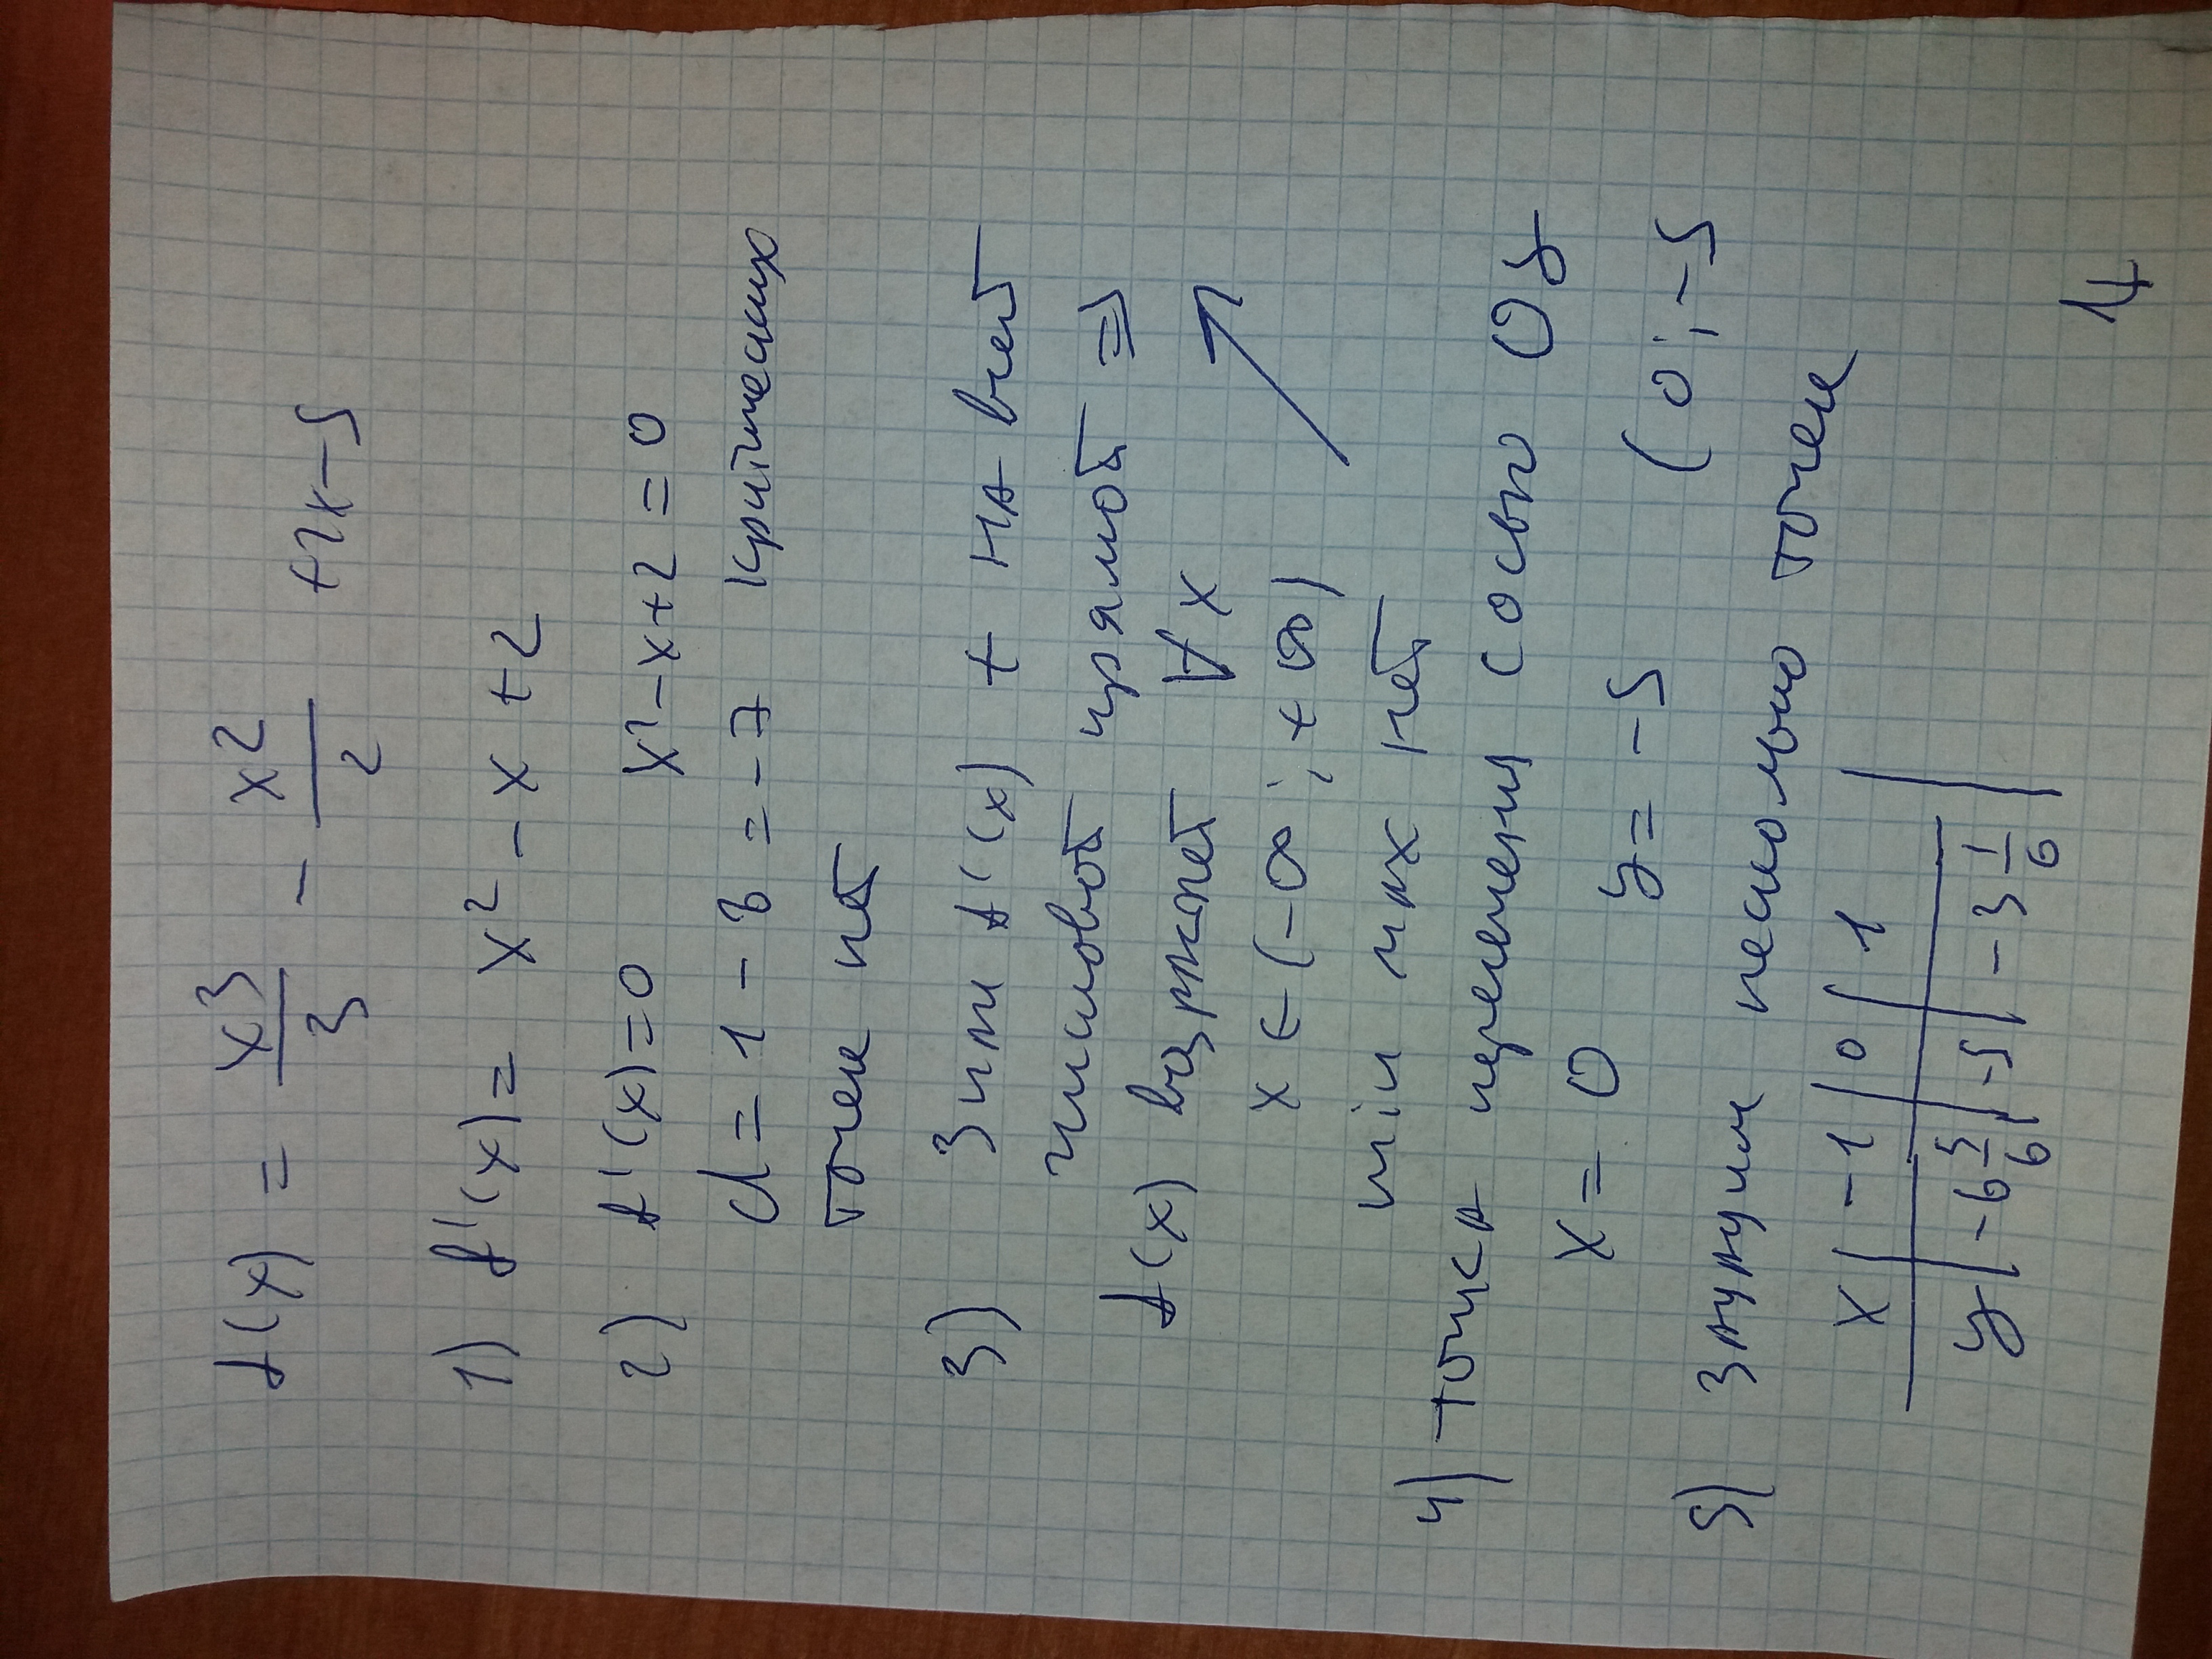 f(x) = x³/3 - x²/2 +2x-5
1) f'(x) = x² - x + 2
2) f'(x)=0 x²-x+2=0
d=1-8=-7 критических
точек нет
3) Знак f'(x) + на всей
числовой прямой =>
f(x) возрастает ∀x
x∈(-∞; +∞)
min max нет
4) точка пересечения с осью Oy
x=0 y=-5 (0;-5
5) значения несколько точек
x | -1 | 0 | 1
y | -6 5/6 | -5 | -3 1/6 |